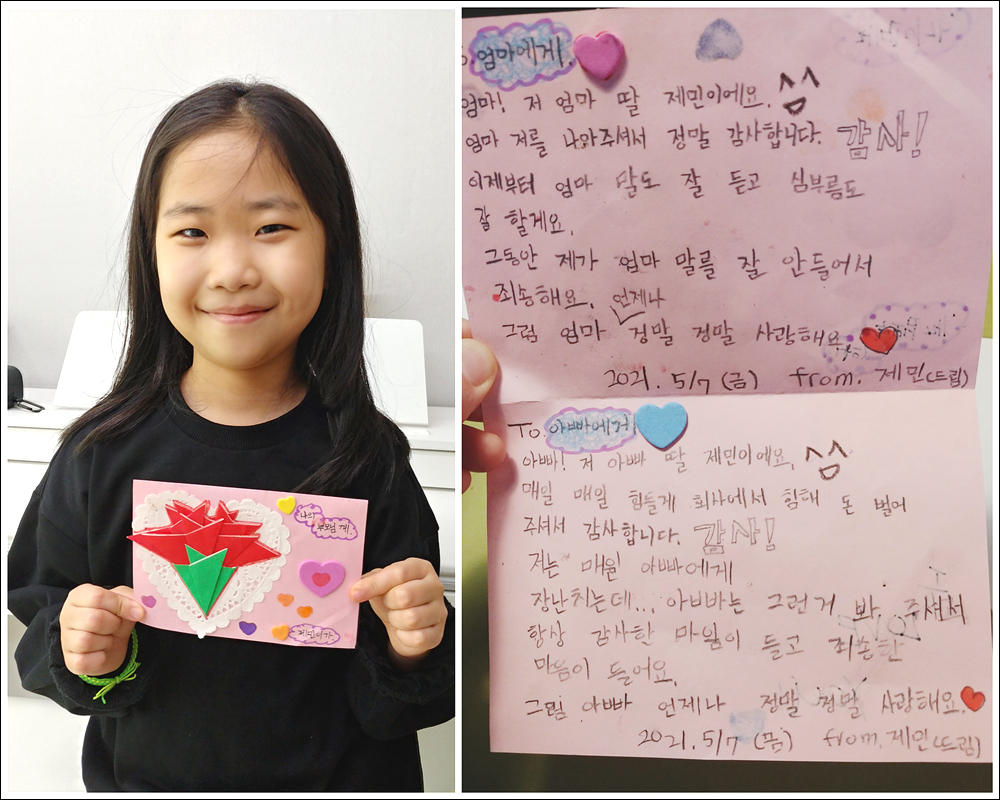 나의
부모님 께.
제민이가.
To. 엄마에게.
엄마! 저 엄마 딸 제민이에요.
엄마 저를 나아주셔서 정말 감사합니다. 감사!
이제부터 엄마 말도 잘 듣고 심부름도
잘 할게요.
그동안 제가 엄마 말를 잘 안들어서
죄송해요. 언제나
그럼 엄마 정말 정말 사랑해요.
2021. 5/7 (금) from. 제민(드림)
To. 아빠에게!
아빠! 저 아빠 딸 제민이에요.
매일 매일 힘들게 회사에서 힘태 돈 벌어
주셔서 감사합니다. 감사!
저는 매일 아빠에게
장난치는데... 아빠는 그런거 봐. 주셔서
항상 감사한 마음이 들고 죄송한
마음이 들어요.
그럼 아빠 언제나 정말 정말 사랑해요.
2021. 5/7 (금) from. 제민(드림)